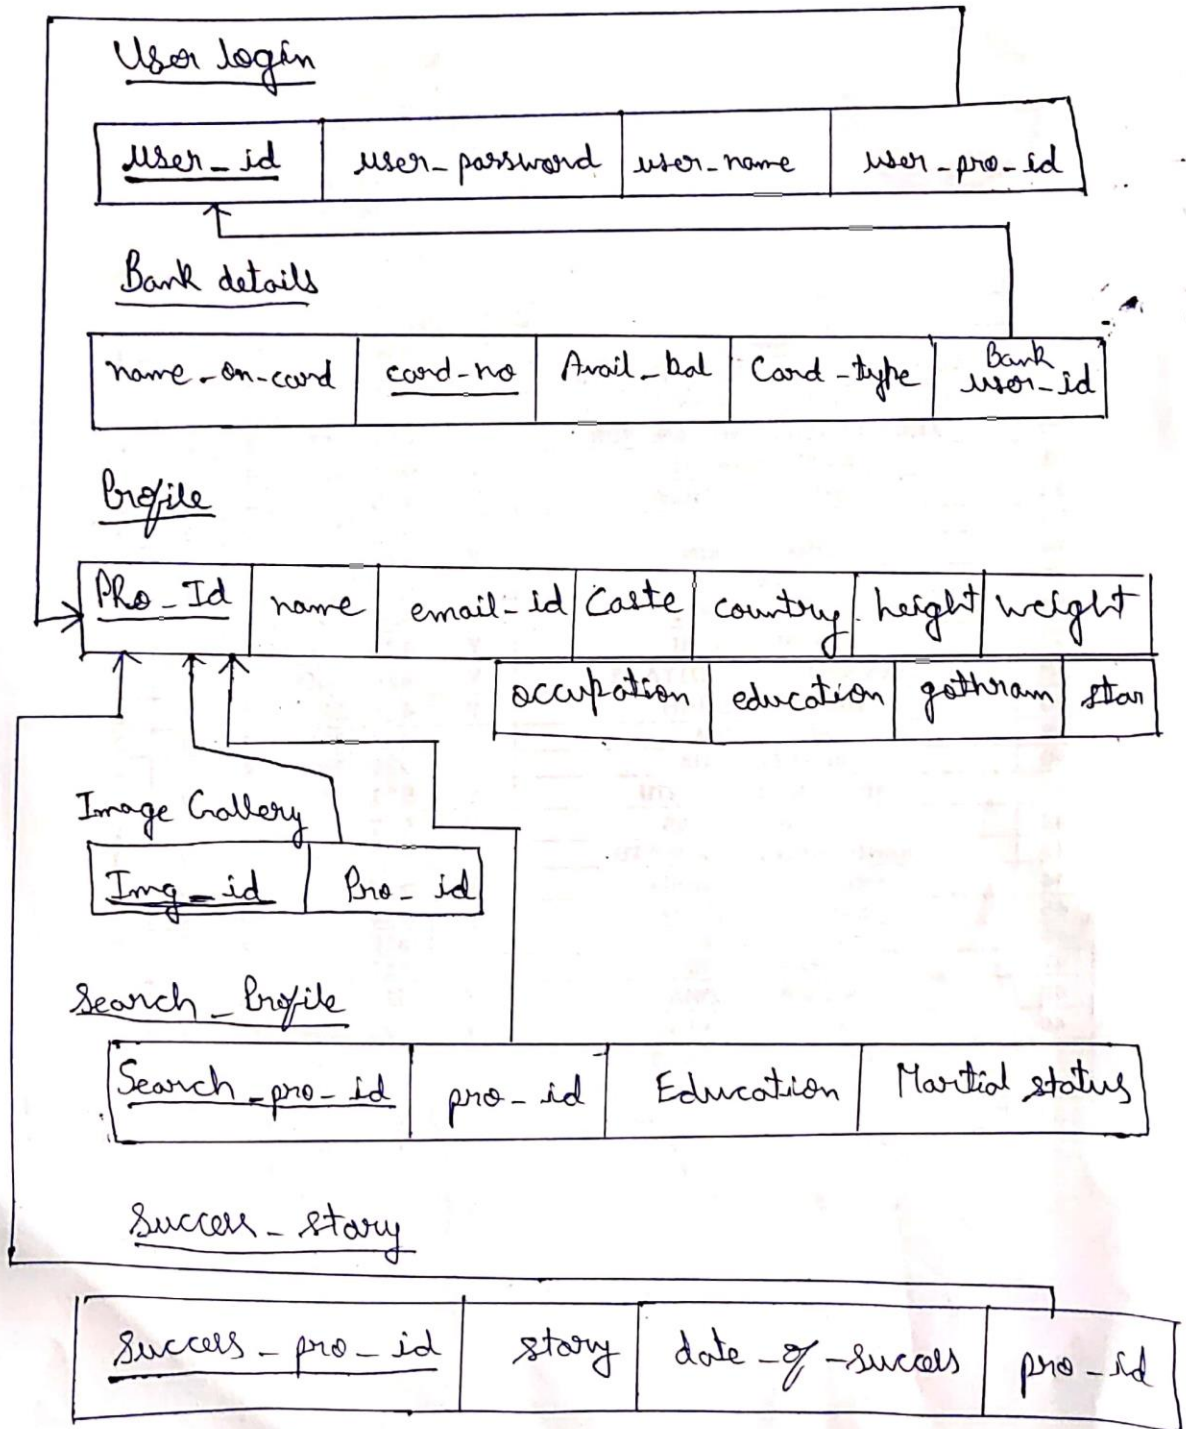 User login
user_id user_password user_name user_pro_id
Bank details
name_on_card card_no Avail_bal Card_type Bank user_id
Profile
Pro_Id name email_id Caste country height weight
occupation education gothram star
Image Gallery
Img_id Pro_id
Search_Profile
Search_pro_id pro_id Education Martial status
Success_story
Success_pro_id story date_of_success pro_id